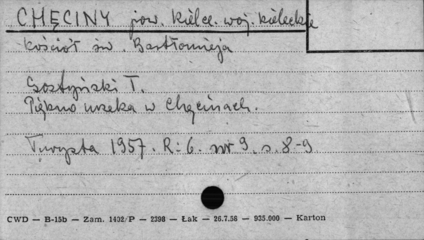 CHĘCINY pow. Kielce. woj. kieleckie
kościół św. Bartłomieja
Gostyński T.
Piękno urzeka w Chęcinach.
Turysta 1957. R: 6. nr 9. s. 8-9
CWD — B-15b — Zam. 1432/P — 2390 — Łak — 26.7.56 — 935.000 — Karton